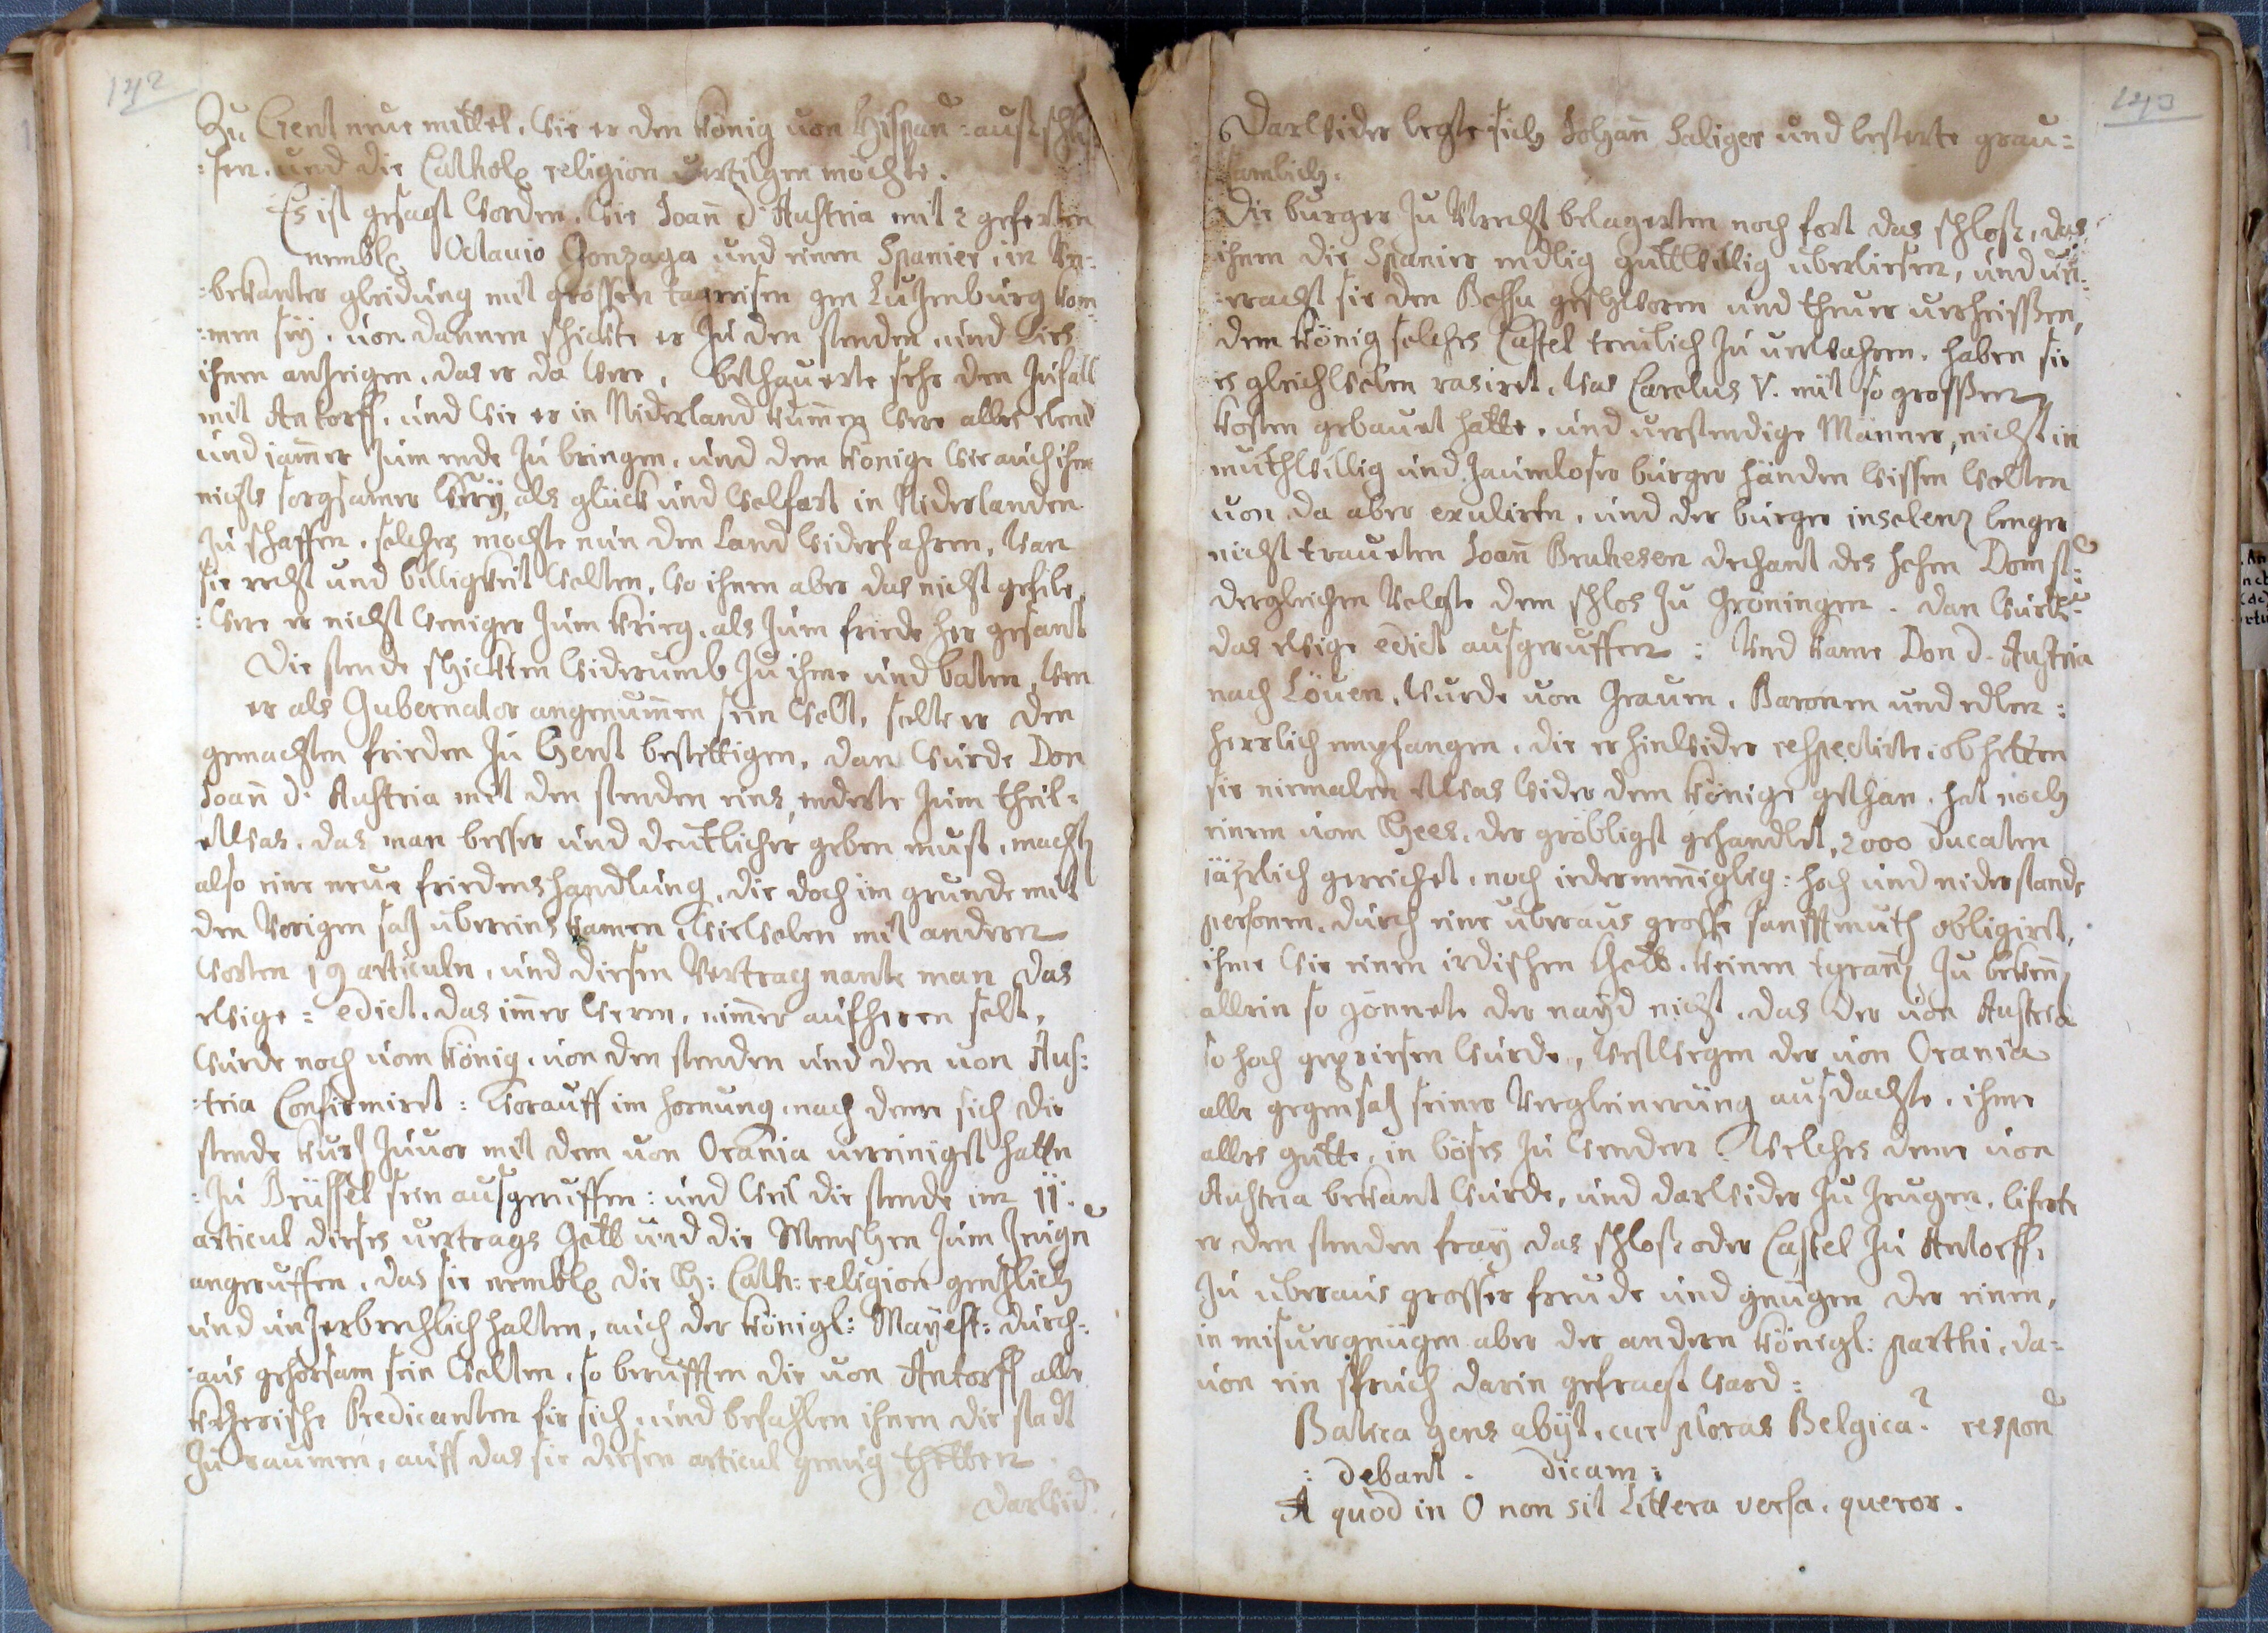 142
Zu Gent neue mittel, wie er den König von Hispan: ausschli
:sen, und die Cathol: religion vertilgen möchte.
Es ist gesagt worden, wie Joan̄ d'Austria mit 2 geferten
nembl: Octauio Gonzaga und einem Spanier, in Un:
:bekanter gleidung mit grossen tagreisen gen Luzenburg kom
:men sÿ. von dannen schickte er zu den stenden und Lies
ihnen anzeigen, das er da were, bethauerte sehr den zufall
mit Antorff, und wie er in Niderland kummen were alles elend
und jam̄er zum ende zu bringen, und dem könige wie auch ihme
nichts sorgsamer seÿ, als glück und wolfart in Niderlanden
zu schaffen, solches mochte nun den Land widerfahren, wan
sie recht und billigkeit wolten, wo ihnen aber das nicht gefile,
:were er nicht weniger zum krieg, als zum friede her gesant
Die stende schickten widerumb zu ihme und baten, wen
er als Gubernator angenum̄en sein wolt, solte er den
gemachten frieden zu Gent bestettigen, dan wurde Don
Joan̄ d'Austria mit den stenden eins, enderte zum theil=
etwas, das man besser und deutlicher geben must, macht
also eine neue friedenshandlung, die doch im grunde mit
den vorigen satz ubereins kamen, wiewolen mit andern
worten 19 articuln, und diesen Vertrag nante man das
ewige= edict, das im̄er weren, nim̄er aufhören solt,
wurde noch vom könig, von den stenden und den von Aus:
:tria Confirmirt: Worauff im hornung, nach deme sich die
stende kurtz zuvor mit dem von Orania vereinigt hatten
:zu Brüssel sein ausgeruffen: und weil die stende im 11.
articul dieses vertrags Gott und die Menschen zum zeugen
angeruffen, das sie nembl: die H: Cath: religion gentzlich
und unzerbrechlich halten, auch der königl: Mayest: durch:
:aus gehorsam sein wolten, so berufften die von Antorff alle
ketzerische Predicanten für sich, und befahlen ihnen die stadt
zu raumen, auff das sie diesen articul genug thetten.
Darwid:
143
Darwider legte sich Johan̄ Saliger und lesterte grau=
samlich.
Die burger zu Utrecht belagerten noch fort das schloß, das
ihnen die Spanier endlig guttwillig uberliesen, und un:
:eracht sie den Bossu geschworen und theuer verheissen,
dem könig solches Castel treulich zu verwahren, haben sie
es gleichwolen rasiret, was Carolus V. mit so grossen
kosten gebauet hatte, und verstendige Männer, nicht in
muthwillig und zaumloser burger händen wissen wolten
von da aber exulirten, und der burger insolenz lenger
nicht traueten Joan̄ Brukesen dechant des hohen Dom st:
dergleichen volgte dem schlos zu Gröningen. Dan wurde
das ewige edict ausgeruffen: Und kame Don d'Austria
nach Löuen, wurde von Grauen, Baronen und edlen:
herrlich empfangen, die er hinwider respectirte, ob hetten
sie niemalen etwas wider dem könige gethan, hat noch
einem vom Hees, der gröbligst gehandlet, 2000 ducaten
jährlich gereichet, noch iedermenniglig: hoch und niderstands
personen, durch eine uberaus grosse sanfftmuth obligirt,
ihme wie einen irdischen Gott, keinen tyrann zu beken̄en
allein so gönnete der nayd nicht, das der von Austria
so hoch gepriesen wurde, westwegen der von Orania
alle gegensatz seiner Vergleinerung ausdachte, ihme
alles gutte, in böses zu wenden. Welches deme von
Austria bekant wurde, und darwider zu zeugen, liferte
er den stenden fray das schloß oder Castel zu Antorff,
zu uberaus grosser freude und gnügen der einen,
in misuergnügen aber der andern königl: parthi, da=
von ein spruch darin gefragt ward:
Batica gens abijt, cur ploras Belgica? respon
:debant. dicam:
A quod in O non sit Littera versa, queror.